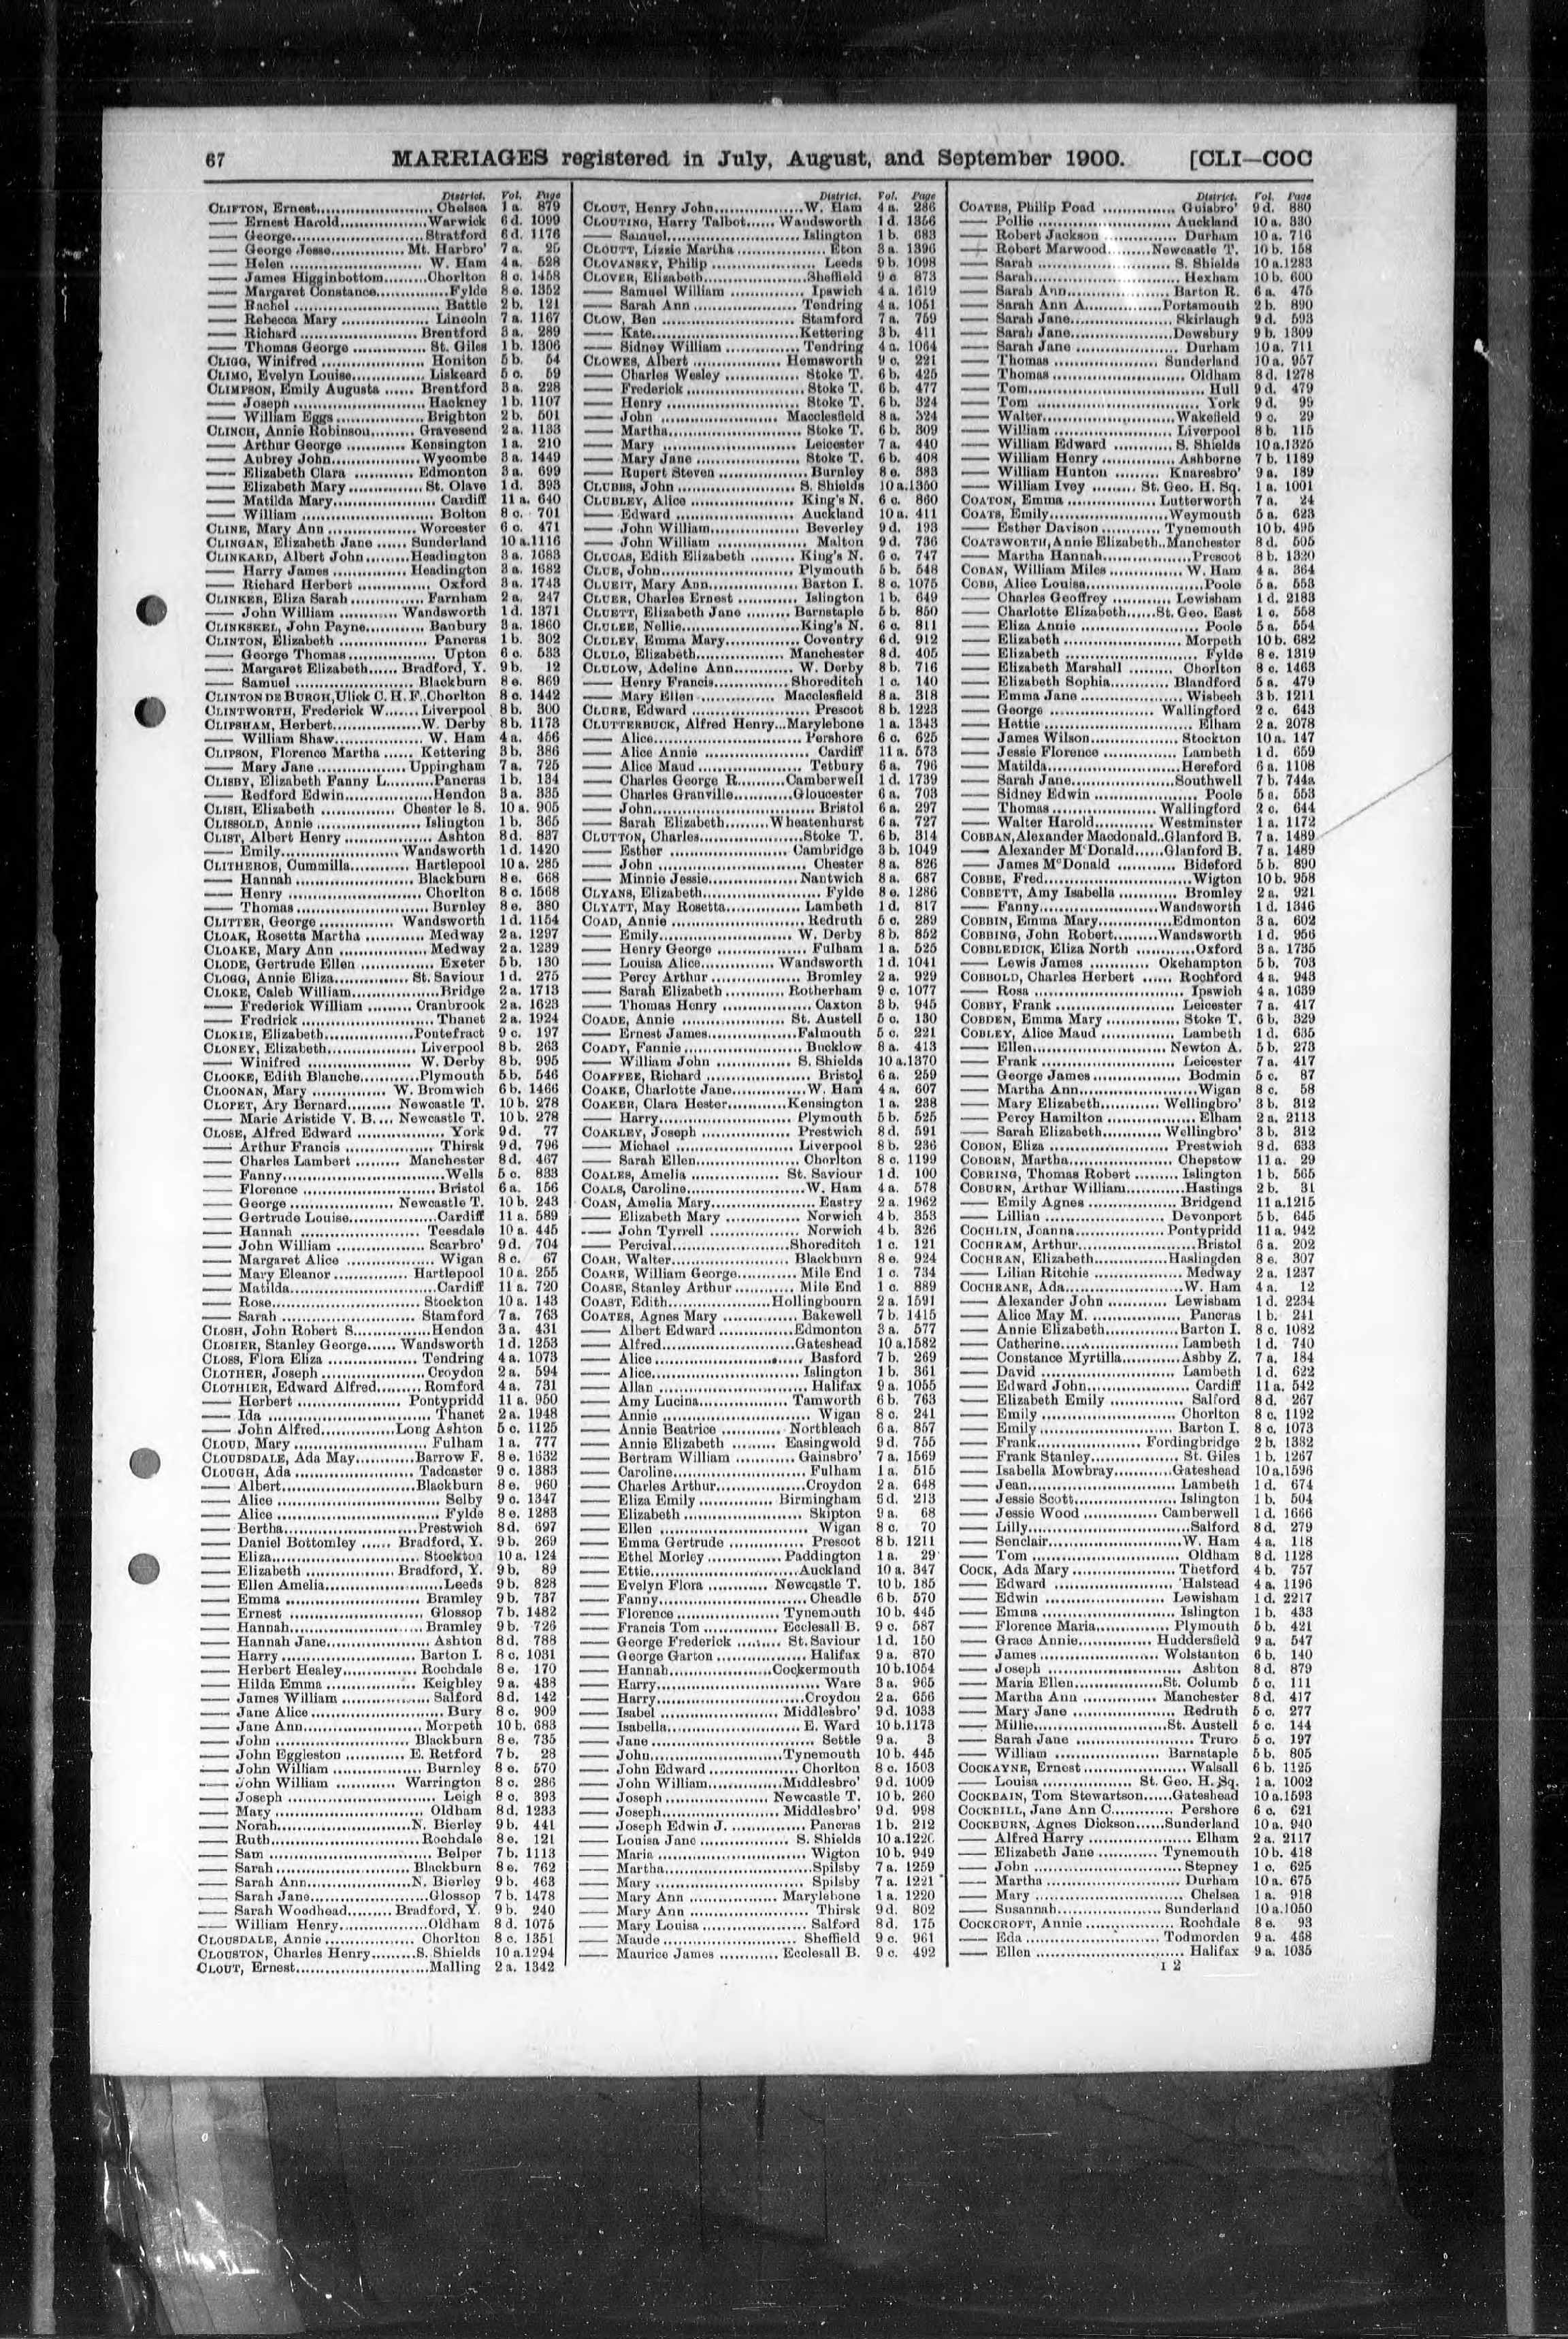 67 MARRIAGES registered in July, August, and September 1900. [CLI—COC
District. Vol. Page
CLIFTON, Ernest ... Chelsea 1 a. 879
—— Ernest Harold ... Warwick 6 d. 1099
—— George ... Stratford 6 d. 1176
—— George Jesse ... Mt. Harbro' 7 a. 25
—— Helen ... W. Ham 4 a. 528
—— James Higginbottom ... Chorlton 8 c. 1458
—— Margaret Constance ... Fylde 8 e. 1352
—— Rachel ... Battle 2 b. 121
—— Rebecca Mary ... Lincoln 7 a. 1167
—— Richard ... Brentford 3 a. 289
—— Thomas George ... St. Giles 1 b. 1306
CLIGG, Winifred ... Honiton 5 b. 54
CLIMO, Evelyn Louise ... Liskeard 5 c. 59
CLIMPSON, Emily Augusta ... Brentford 3 a. 228
—— Joseph ... Hackney 1 b. 1107
—— William Eggs ... Brighton 2 b. 501
CLINCH, Annie Robinson ... Gravesend 2 a. 1133
—— Arthur George ... Kensington 1 a. 210
—— Aubrey John ... Wycombe 3 a. 1449
—— Elizabeth Clara ... Edmonton 3 a. 699
—— Elizabeth Mary ... St. Olave 1 d. 393
—— Matilda Mary ... Cardiff 11 a. 640
—— William ... Bolton 8 c. 701
CLINE, Mary Ann ... Worcester 6 c. 471
CLINGAN, Elizabeth Jane ... Sunderland 10 a. 1116
CLINKARD, Albert John ... Headington 3 a. 1683
—— Harry James ... Headington 3 a. 1682
—— Richard Herbert ... Oxford 3 a. 1743
CLINKER, Eliza Sarah ... Farnham 2 a. 247
—— John William ... Wandsworth 1 d. 1371
CLINKSKEL, John Payne ... Banbury 3 a. 1860
CLINTON, Elizabeth ... Pancras 1 b. 302
—— George Thomas ... Upton 6 c. 533
—— Margaret Elizabeth ... Bradford, Y. 9 b. 12
—— Samuel ... Blackburn 8 e. 869
CLINTON DE BURGH, Ulick C. H. F. Chorlton 8 c. 1442
CLINTWORTH, Frederick W. ... Liverpool 8 b. 300
CLIPSHAM, Herbert ... W. Derby 8 b. 1173
—— William Shaw ... W. Ham 4 a. 456
CLIPSON, Florence Martha ... Kettering 3 b. 386
—— Mary Jane ... Uppingham 7 a. 725
CLISBY, Elizabeth Fanny L. ... Pancras 1 b. 134
—— Redford Edwin ... Hendon 3 a. 335
CLISH, Elizabeth ... Chester le S. 10 a. 905
CLISSOLD, Annie ... Islington 1 b. 365
CLIST, Albert Henry ... Ashton 8 d. 837
—— Emily ... Wandsworth 1 d. 1420
CLITHEROE, Cummilla ... Hartlepool 10 a. 285
—— Hannah ... Blackburn 8 e. 668
—— Henry ... Chorlton 8 c. 1568
—— Thomas ... Burnley 8 e. 380
CLITTER, George ... Wandsworth 1 d. 1154
CLOAK, Rosetta Martha ... Medway 2 a. 1297
CLOAKE, Mary Ann ... Medway 2 a. 1239
CLODE, Gertrude Ellen ... Exeter 5 b. 130
CLOGG, Annie Eliza ... St. Saviour 1 d. 275
CLOKE, Caleb William ... Bridge 2 a. 1713
—— Frederick William ... Cranbrook 2 a. 1623
—— Fredrick ... Thanet 2 a. 1924
CLOKIE, Elizabeth ... Pontefract 9 c. 197
CLONEY, Elizabeth ... Liverpool 8 b. 263
—— Winifred ... W. Derby 8 b. 995
CLOOKE, Edith Blanche ... Plymouth 5 b. 546
CLOONAN, Mary ... W. Bromwich 6 b. 1466
CLOPET, Ary Bernard ... Newcastle T. 10 b. 278
—— Marie Aristide V. B. ... Newcastle T. 10 b. 278
CLOSE, Alfred Edward ... York 9 d. 77
—— Arthur Francis ... Thirsk 9 d. 796
—— Charles Lambert ... Manchester 8 d. 467
—— Fanny ... Wells 5 c. 833
—— Florence ... Bristol 6 a. 156
—— George ... Newcastle T. 10 b. 243
—— Gertrude Louise ... Cardiff 11 a. 589
—— Hannah ... Teesdale 10 a. 445
—— John William ... Scarbro' 9 d. 704
—— Margaret Alice ... Wigan 8 c. 67
—— Mary Eleanor ... Hartlepool 10 a. 255
—— Matilda ... Cardiff 11 a. 720
—— Rose ... Stockton 10 a. 143
—— Sarah ... Stamford 7 a. 763
CLOSH, John Robert S. ... Hendon 3 a. 431
CLOSIER, Stanley George ... Wandsworth 1 d. 1253
CLOSS, Flora Eliza ... Tendring 4 a. 1073
CLOTHER, Joseph ... Croydon 2 a. 594
CLOTHIER, Edward Alfred ... Romford 4 a. 731
—— Herbert ... Pontypridd 11 a. 950
—— Ida ... Thanet 2 a. 1948
—— John Alfred ... Long Ashton 5 c. 1125
CLOUD, Mary ... Fulham 1 a. 777
CLOUDSDALE, Ada May ... Barrow F. 8 e. 1632
CLOUGH, Ada ... Tadcaster 9 c. 1383
—— Albert ... Blackburn 8 e. 960
—— Alice ... Selby 9 c. 1347
—— Alice ... Fylde 8 e. 1283
—— Bertha ... Prestwich 8 d. 697
—— Daniel Bottomley ... Bradford, Y. 9 b. 269
—— Eliza ... Stockton 10 a. 124
—— Elizabeth ... Bradford, Y. 9 b. 89
—— Ellen Amelia ... Leeds 9 b. 828
—— Emma ... Bramley 9 b. 737
—— Ernest ... Glossop 7 b. 1482
—— Hannah ... Bramley 9 b. 726
—— Hannah Jane ... Ashton 8 d. 788
—— Harry ... Barton I. 8 c. 1031
—— Herbert Healey ... Rochdale 8 e. 170
—— Hilda Emma ... Keighley 9 a. 438
—— James William ... Salford 8 d. 142
—— Jane Alice ... Bury 8 c. 909
—— Jane Ann ... Morpeth 10 b. 683
—— John ... Blackburn 8 e. 735
—— John Eggleston ... E. Retford 7 b. 28
—— John William ... Burnley 8 e. 570
—— John William ... Warrington 8 c. 286
—— Joseph ... Leigh 8 c. 393
—— Mary ... Oldham 8 d. 1233
—— Norah ... N. Bierley 9 b. 441
—— Ruth ... Rochdale 8 e. 121
—— Sam ... Belper 7 b. 1113
—— Sarah ... Blackburn 8 e. 762
—— Sarah Ann ... N. Bierley 9 b. 463
—— Sarah Jane ... Glossop 7 b. 1478
—— Sarah Woodhead ... Bradford, Y. 9 b. 240
—— William Henry ... Oldham 8 d. 1075
CLOUSDALE, Annie ... Chorlton 8 c. 1351
CLOUSTON, Charles Henry ... S. Shields 10 a. 1294
CLOUT, Ernest ... Malling 2 a. 1342
District. Vol. Page
CLOUT, Henry John ... W. Ham 4 a. 286
CLOUTING, Harry Talbot ... Wandsworth 1 d. 1356
—— Samuel ... Islington 1 b. 683
CLOUTT, Lizzie Martha ... Eton 3 a. 1396
CLOVANSKY, Philip ... Leeds 9 b. 1098
CLOVER, Elizabeth ... Sheffield 9 c. 873
—— Samuel William ... Ipswich 4 a. 1619
—— Sarah Ann ... Tendring 4 a. 1051
CLOW, Ben ... Stamford 7 a. 759
—— Kate ... Kettering 3 b. 411
—— Sidney William ... Tendring 4 a. 1064
CLOWES, Albert ... Hemsworth 9 c. 221
—— Charles Wesley ... Stoke T. 6 b. 425
—— Frederick ... Stoke T. 6 b. 477
—— Henry ... Stoke T. 6 b. 324
—— John ... Macclesfield 8 a. 324
—— Martha ... Stoke T. 6 b. 309
—— Mary ... Leicester 7 a. 440
—— Mary Jane ... Stoke T. 6 b. 408
—— Rupert Steven ... Burnley 8 e. 383
CLUBBS, John ... S. Shields 10 a. 1350
CLUBLEY, Alice ... King's N. 6 c. 860
—— Edward ... Auckland 10 a. 411
—— John William ... Beverley 9 d. 193
—— John William ... Malton 9 d. 736
CLUCAS, Edith Elizabeth ... King's N. 6 c. 747
CLUE, John ... Plymouth 5 b. 548
CLUEIT, Mary Ann ... Barton I. 8 c. 1075
CLUER, Charles Ernest ... Islington 1 b. 649
CLUETT, Elizabeth Jane ... Barnstaple 5 b. 850
CLULEE, Nellie ... King's N. 6 c. 811
CLULEY, Emma Mary ... Coventry 6 d. 912
CLULO, Elizabeth ... Manchester 8 d. 405
CLULOW, Adeline Ann ... W. Derby 8 b. 716
—— Henry Francis ... Shoreditch 1 c. 140
—— Mary Ellen ... Macclesfield 8 a. 318
CLURE, Edward ... Prescot 8 b. 1223
CLUTTERBUCK, Alfred Henry ... Marylebone 1 a. 1343
—— Alice ... Pershore 6 c. 625
—— Alice Annie ... Cardiff 11 a. 573
—— Alice Maud ... Tetbury 6 a. 796
—— Charles George R. ... Camberwell 1 d. 1739
—— Charles Granville ... Gloucester 6 a. 703
—— John ... Bristol 6 a. 297
—— Sarah Elizabeth ... Wheatenhurst 6 a. 727
CLUTTON, Charles ... Stoke T. 6 b. 314
—— Esther ... Cambridge 3 b. 1049
—— John ... Chester 8 a. 826
—— Minnie Jessie ... Nantwich 8 a. 687
CLYANS, Elizabeth ... Fylde 8 e. 1286
CLYATT, May Rosetta ... Lambeth 1 d. 817
COAD, Annie ... Redruth 5 c. 289
—— Emily ... W. Derby 8 b. 852
—— Henry George ... Fulham 1 a. 525
—— Louisa Alice ... Wandsworth 1 d. 1041
—— Percy Arthur ... Bromley 2 a. 929
—— Sarah Elizabeth ... Rotherham 9 c. 1077
—— Thomas Henry ... Caxton 3 b. 945
COADE, Annie ... St. Austell 5 c. 130
—— Ernest James ... Falmouth 5 c. 221
COADY, Fannie ... Bucklow 8 a. 413
—— William John ... S. Shields 10 a. 1370
COAFFEE, Richard ... Bristol 6 a. 259
COAKE, Charlotte Jane ... W. Ham 4 a. 607
COAKER, Clara Hester ... Kensington 1 a. 238
—— Harry ... Plymouth 5 b. 525
COAKLEY, Joseph ... Prestwich 8 d. 591
—— Michael ... Liverpool 8 b. 236
—— Sarah Ellen ... Chorlton 8 c. 1199
COALES, Amelia ... St. Saviour 1 d. 100
COALS, Caroline ... W. Ham 4 a. 578
COAN, Amelia Mary ... Eastry 2 a. 1962
—— Elizabeth Mary ... Norwich 4 b. 353
—— John Tyrrell ... Norwich 4 b. 326
—— Percival ... Shoreditch 1 c. 121
COAR, Walter ... Blackburn 8 e. 924
COARE, William George ... Mile End 1 c. 734
COASE, Stanley Arthur ... Mile End 1 c. 889
COAST, Edith ... Hollingbourn 2 a. 1591
COATES, Agnes Mary ... Bakewell 7 b. 1415
—— Albert Edward ... Edmonton 3 a. 577
—— Alfred ... Gateshead 10 a. 1582
—— Alice ... Basford 7 b. 269
—— Alice ... Islington 1 b. 361
—— Allan ... Halifax 9 a. 1055
—— Amy Lucina ... Tamworth 6 b. 763
—— Annie ... Wigan 8 c. 241
—— Annie Beatrice ... Northleach 6 a. 857
—— Annie Elizabeth ... Easingwold 9 d. 755
—— Bertram William ... Gainsbro' 7 a. 1569
—— Caroline ... Fulham 1 a. 515
—— Charles Arthur ... Croydon 2 a. 648
—— Eliza Emily ... Birmingham 6 d. 213
—— Elizabeth ... Skipton 9 a. 68
—— Ellen ... Wigan 8 c. 70
—— Emma Gertrude ... Prescot 8 b. 1211
—— Ethel Morley ... Paddington 1 a. 29
—— Ettie ... Auckland 10 a. 347
—— Evelyn Flora ... Newcastle T. 10 b. 185
—— Fanny ... Cheadle 6 b. 570
—— Florence ... Tynemouth 10 b. 445
—— Francis Tom ... Ecclesall B. 9 c. 587
—— George Frederick ... St. Saviour 1 d. 150
—— George Garton ... Halifax 9 a. 870
—— Hannah ... Cockermouth 10 b. 1054
—— Harry ... Ware 3 a. 965
—— Harry ... Croydon 2 a. 656
—— Isabel ... Middlesbro' 9 d. 1033
—— Isabella ... E. Ward 10 b. 1173
—— Jane ... Settle 9 a. 3
—— John ... Tynemouth 10 b. 445
—— John Edward ... Chorlton 8 c. 1503
—— John William ... Middlesbro' 9 d. 1009
—— Joseph ... Newcastle T. 10 b. 260
—— Joseph ... Middlesbro' 9 d. 998
—— Joseph Edwin J. ... Pancras 1 b. 212
—— Louisa Jane ... S. Shields 10 a.
—— Maria ... Wigton 10 b. 949
—— Martha ... Spilsby 7 a. 1259
—— Mary ... Spilsby 7 a. 1221
—— Mary Ann ... Marylebone 1 a. 1220
—— Mary Ann ... Thirsk 9 d. 802
—— Mary Louisa ... Salford 8 d. 175
—— Maude ... Sheffield 9 c. 961
—— Maurice James ... Ecclesall B. 9 c. 492
District. Vol. Page
COATES, Philip Poad ... Guisbro' 9 d. 880
—— Pollie ... Auckland 10 a. 330
—— Robert Jackson ... Durham 10 a. 716
—— Robert Marwood ... Newcastle T. 10 b. 158
—— Sarah ... S. Shields 10 a. 1283
—— Sarah ... Hexham 10 b. 600
—— Sarah Ann ... Barton R. 6 a. 475
—— Sarah Ann A. ... Portsmouth 2 b. 890
—— Sarah Jane ... Skirlaugh 9 d. 593
—— Sarah Jane ... Dewsbury 9 b. 1309
—— Sarah Jane ... Durham 10 a. 711
—— Thomas ... Sunderland 10 a. 957
—— Thomas ... Oldham 8 d. 1278
—— Tom ... Hull 9 d. 479
—— Tom ... York 9 d. 99
—— Walter ... Wakefield 9 c. 29
—— William ... Liverpool 8 b. 115
—— William Edward ... S. Shields 10 a. 1325
—— William Henry ... Ashborne 7 b. 1189
—— William Hunton ... Knaresbro' 9 a. 189
—— William Ivey ... St. Geo. H. Sq. 1 a. 1001
COATON, Emma ... Lutterworth 7 a. 24
COATS, Emily ... Weymouth 5 a. 623
—— Esther Davison ... Tynemouth 10 b. 495
COATSWORTH, Annie Elizabeth .. Manchester 8 d. 505
—— Martha Hannah ... Prescot 8 b. 1320
COBAN, William Miles ... W. Ham 4 a. 364
COBB, Alice Louisa ... Poole 5 a. 553
—— Charles Geoffrey ... Lewisham 1 d. 2183
—— Charlotte Elizabeth ... St. Geo. East 1 c. 558
—— Eliza Annie ... Poole 5 a. 554
—— Elizabeth ... Morpeth 10 b. 682
—— Elizabeth ... Fylde 8 e. 1319
—— Elizabeth Marshall ... Chorlton 8 c. 1463
—— Elizabeth Sophia ... Blandford 5 a. 479
—— Emma Jane ... Wisbech 3 b. 1211
—— George ... Wallingford 2 c. 643
—— Hettie ... Elham 2 a. 2078
—— James Wilson ... Stockton 10 a. 147
—— Jessie Florence ... Lambeth 1 d. 659
—— Matilda ... Hereford 6 a. 1108
—— Sarah Jane ... Southwell 7 b. 744a
—— Sidney Edwin ... Poole 5 a. 553
—— Thomas ... Wallingford 2 c. 644
—— Walter Harold ... Westminster 1 a. 1172
COBBAN, Alexander Macdonald .. Glanford B. 7 a. 1489
—— Alexander McDonald ... Glanford B. 7 a. 1489
—— James McDonald ... Bideford 5 b. 890
COBBE, Fred ... Wigton 10 b. 958
COBBETT, Amy Isabella ... Bromley 2 a. 921
—— Fanny ... Wandsworth 1 d. 1346
COBBIN, Emma Mary ... Edmonton 3 a. 602
COBBING, John Robert ... Wandsworth 1 d. 956
COBBLEDICK, Eliza North ... Oxford 3 a. 1735
—— Lewis James ... Okehampton 5 b. 703
COBBOLD, Charles Herbert ... Rochford 4 a. 943
—— Rosa ... Ipswich 4 a. 1639
COBBY, Frank ... Leicester 7 a. 417
COBDEN, Emma Mary ... Stoke T. 6 b. 329
COBLEY, Alice Maud ... Lambeth 1 d. 635
—— Ellen ... Newton A. 5 b. 273
—— Frank ... Leicester 7 a. 417
—— George James ... Bodmin 5 c. 87
—— Martha Ann ... Wigan 8 c. 58
—— Mary Elizabeth ... Wellingbro' 3 b. 312
—— Percy Hamilton ... Elham 2 a. 2113
—— Sarah Elizabeth ... Wellingbro' 3 b. 312
COBON, Eliza ... Prestwich 8 d. 633
COBORN, Martha ... Chepstow 11 a. 29
COBRING, Thomas Robert ... Islington 1 b. 565
COBURN, Arthur William ... Hastings 2 b. 31
—— Emily Agnes ... Bridgend 11 a. 1215
—— Lillian ... Devonport 5 b. 645
COCHLIN, Joanna ... Pontypridd 11 a. 942
COCHRAM, Arthur ... Bristol 6 a. 202
COCHRAN, Elizabeth ... Haslingden 8 e. 307
—— Lilian Ritchie ... Medway 2 a. 1237
COCHRANE, Ada ... W. Ham 4 a. 12
—— Alexander John ... Lewisham 1 d. 2234
—— Alice May M. ... Pancras 1 b. 241
—— Annie Elizabeth ... Barton I. 8 c. 1082
—— Catherine ... Lambeth 1 d. 740
—— Constance Myrtilla ... Ashby Z. 7 a. 184
—— David ... Lambeth 1 d. 622
—— Edward John ... Cardiff 11 a. 542
—— Elizabeth Emily ... Salford 8 d. 267
—— Emily ... Chorlton 8 c. 1192
—— Emily ... Barton I. 8 c. 1073
—— Frank ... Fordingbridge 2 b. 1382
—— Frank Stanley ... St. Giles 1 b. 1267
—— Isabella Mowbray ... Gateshead 10 a. 1596
—— Jean ... Lambeth 1 d. 674
—— Jessie Scott ... Islington 1 b. 504
—— Jessie Wood ... Camberwell 1 d. 1666
—— Lilly ... Salford 8 d. 279
—— Senclair ... W. Ham 4 a. 118
—— Tom ... Oldham 8 d. 1128
COCK, Ada Mary ... Thetford 4 b. 757
—— Edward ... Halstead 4 a. 1196
—— Edwin ... Lewisham 1 d. 2217
—— Emma ... Islington 1 b. 433
—— Florence Maria ... Plymouth 5 b. 421
—— Grace Annie ... Huddersfield 9 a. 547
—— James ... Wolstanton 6 b. 140
—— Joseph ... Ashton 8 d. 879
—— Maria Ellen ... St. Columb 5 c. 111
—— Martha Ann ... Manchester 8 d. 417
—— Mary Jane ... Redruth 5 c. 277
—— Millie ... St. Austell 5 c. 144
—— Sarah Jane ... Truro 5 c. 197
—— William ... Barnstaple 5 b. 805
COCKAYNE, Ernest ... Walsall 6 b. 1125
—— Louisa ... St. Geo. H. Sq. 1 a. 1002
COCKBAIN, Tom Stewartson ... Gateshead 10 a. 1593
COCKBILL, Jane Ann C. ... Pershore 6 c. 621
COCKBURN, Agnes Dickson ... Sunderland 10 a. 940
—— Alfred Harry ... Elham 2 a. 2117
—— Elizabeth Jane ... Tynemouth 10 b. 418
—— John ... Stepney 1 c. 625
—— Martha ... Durham 10 a. 675
—— Mary ... Chelsea 1 a. 918
—— Susannah ... Sunderland 10 a. 1050
COCKCROFT, Annie ... Rochdale 8 e. 93
—— Eda ... Todmorden 9 a. 468
—— Ellen ... Halifax 9 a. 1035
I 2